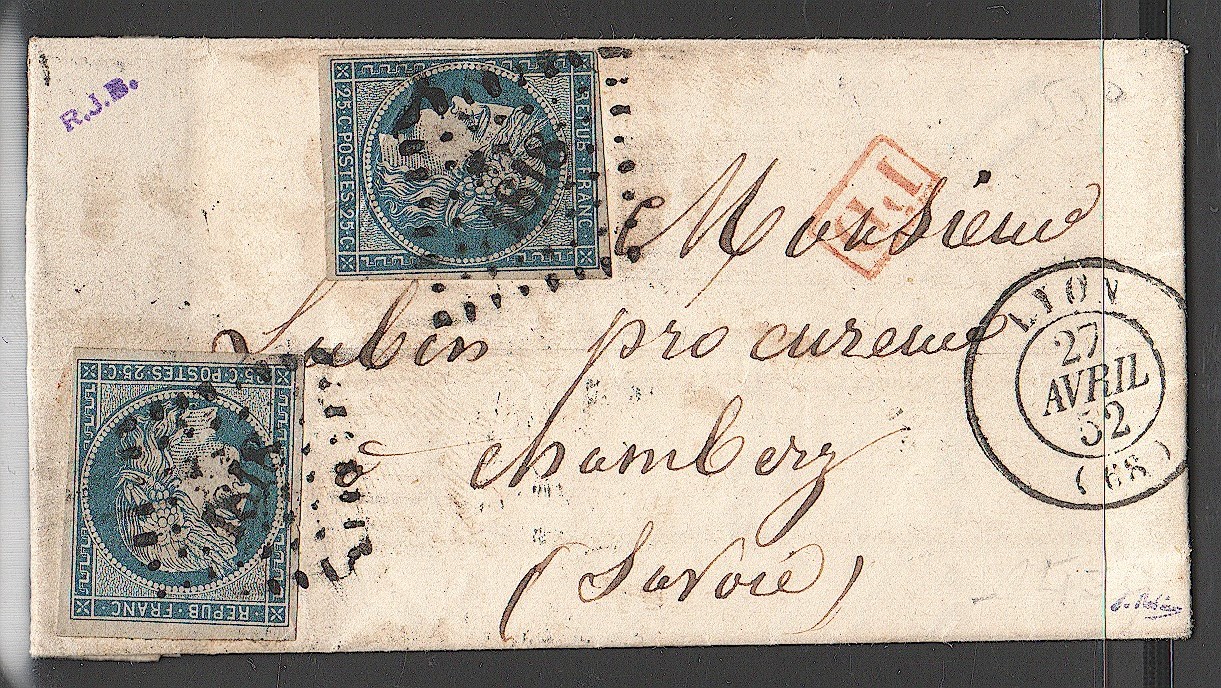 R.J.B.
25·C·POSTES·25·C
REPUB·FRANC
P.D.
Monsieur
Lubin procureur
à chambery
(Savoie)
LYON
27
AVRIL
52
(68)
25·C·POSTES·25·C
REPUB·FRANC
1818